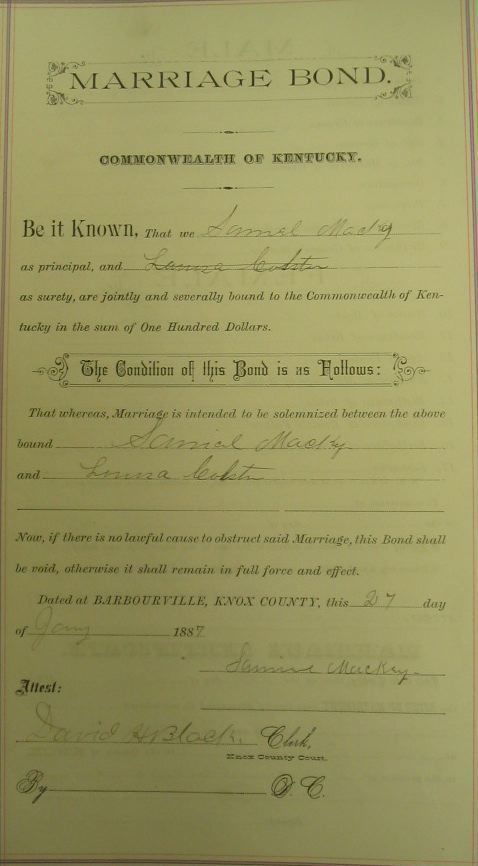 MARRIAGE BOND.
COMMONWEALTH OF KENTUCKY.
Be it Known, That we Samiel Macky
as principal, and Lousa Colster
as surety, are jointly and severally bound to the Commonwealth of Ken-
tucky in the sum of One Hundred Dollars.
The Condition of this Bond is as Follows:
That whereas, Marriage is intended to be solemnized between the above
bound Samiel Macky
and Lousa
Now, if there is no lawful cause to obstruct said Marriage, this Bond shall
be void, otherwise it shall remain in full force and effect.
Dated at BARBOURVILLE, KNOX COUNTY, this 27 day
of Jany 1887
Mackey
Attest:
David H Black, Clerk,
Knox County Court.
By D. C.